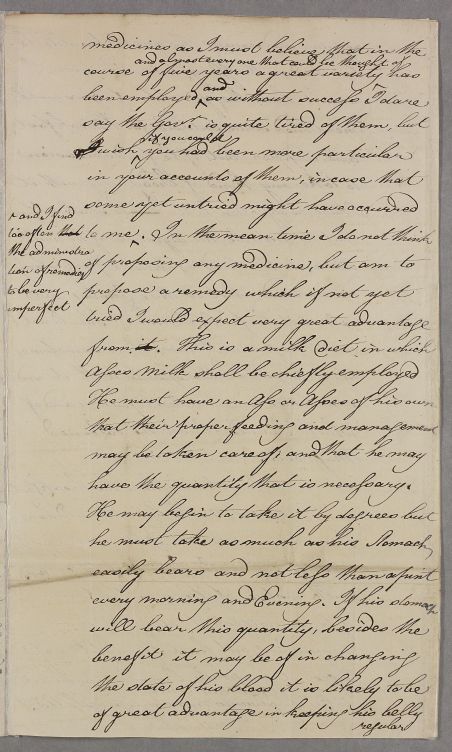 medicines as I must believe, that in the
and almost every one that could be thought of
course of five years a great variety has
and
been employ'd as without success I dare
say the Gov.r is quite tired of them, but
if you could
I wish you had been more particular
in your accounts of them, in case that
some yet untried might have occurred
to me. In the mean time I do not think
of proposing any medicine, but am to
propose a remedy which if not yet
tried I would expect very great advantage
from it. This is a milk diet in which
Asses Milk shall be chiefly employed
He must have an Ass or Asses of his own
that their proper feeding and management
may be taken care of, and that he may
have the quantity that is necessary.
He may begin to take it by degrees but
he must take as much as his Stomach
easily bears and not less than a pint
every morning and Evening. If his stomach
will bear this quantity, besides the
benefit it may be of in changing
the state of his blood it is likely to be
of great advantage in keeping his belly
regular
and I find
too often that
the administra
tion of remedies
to be very
imperfect